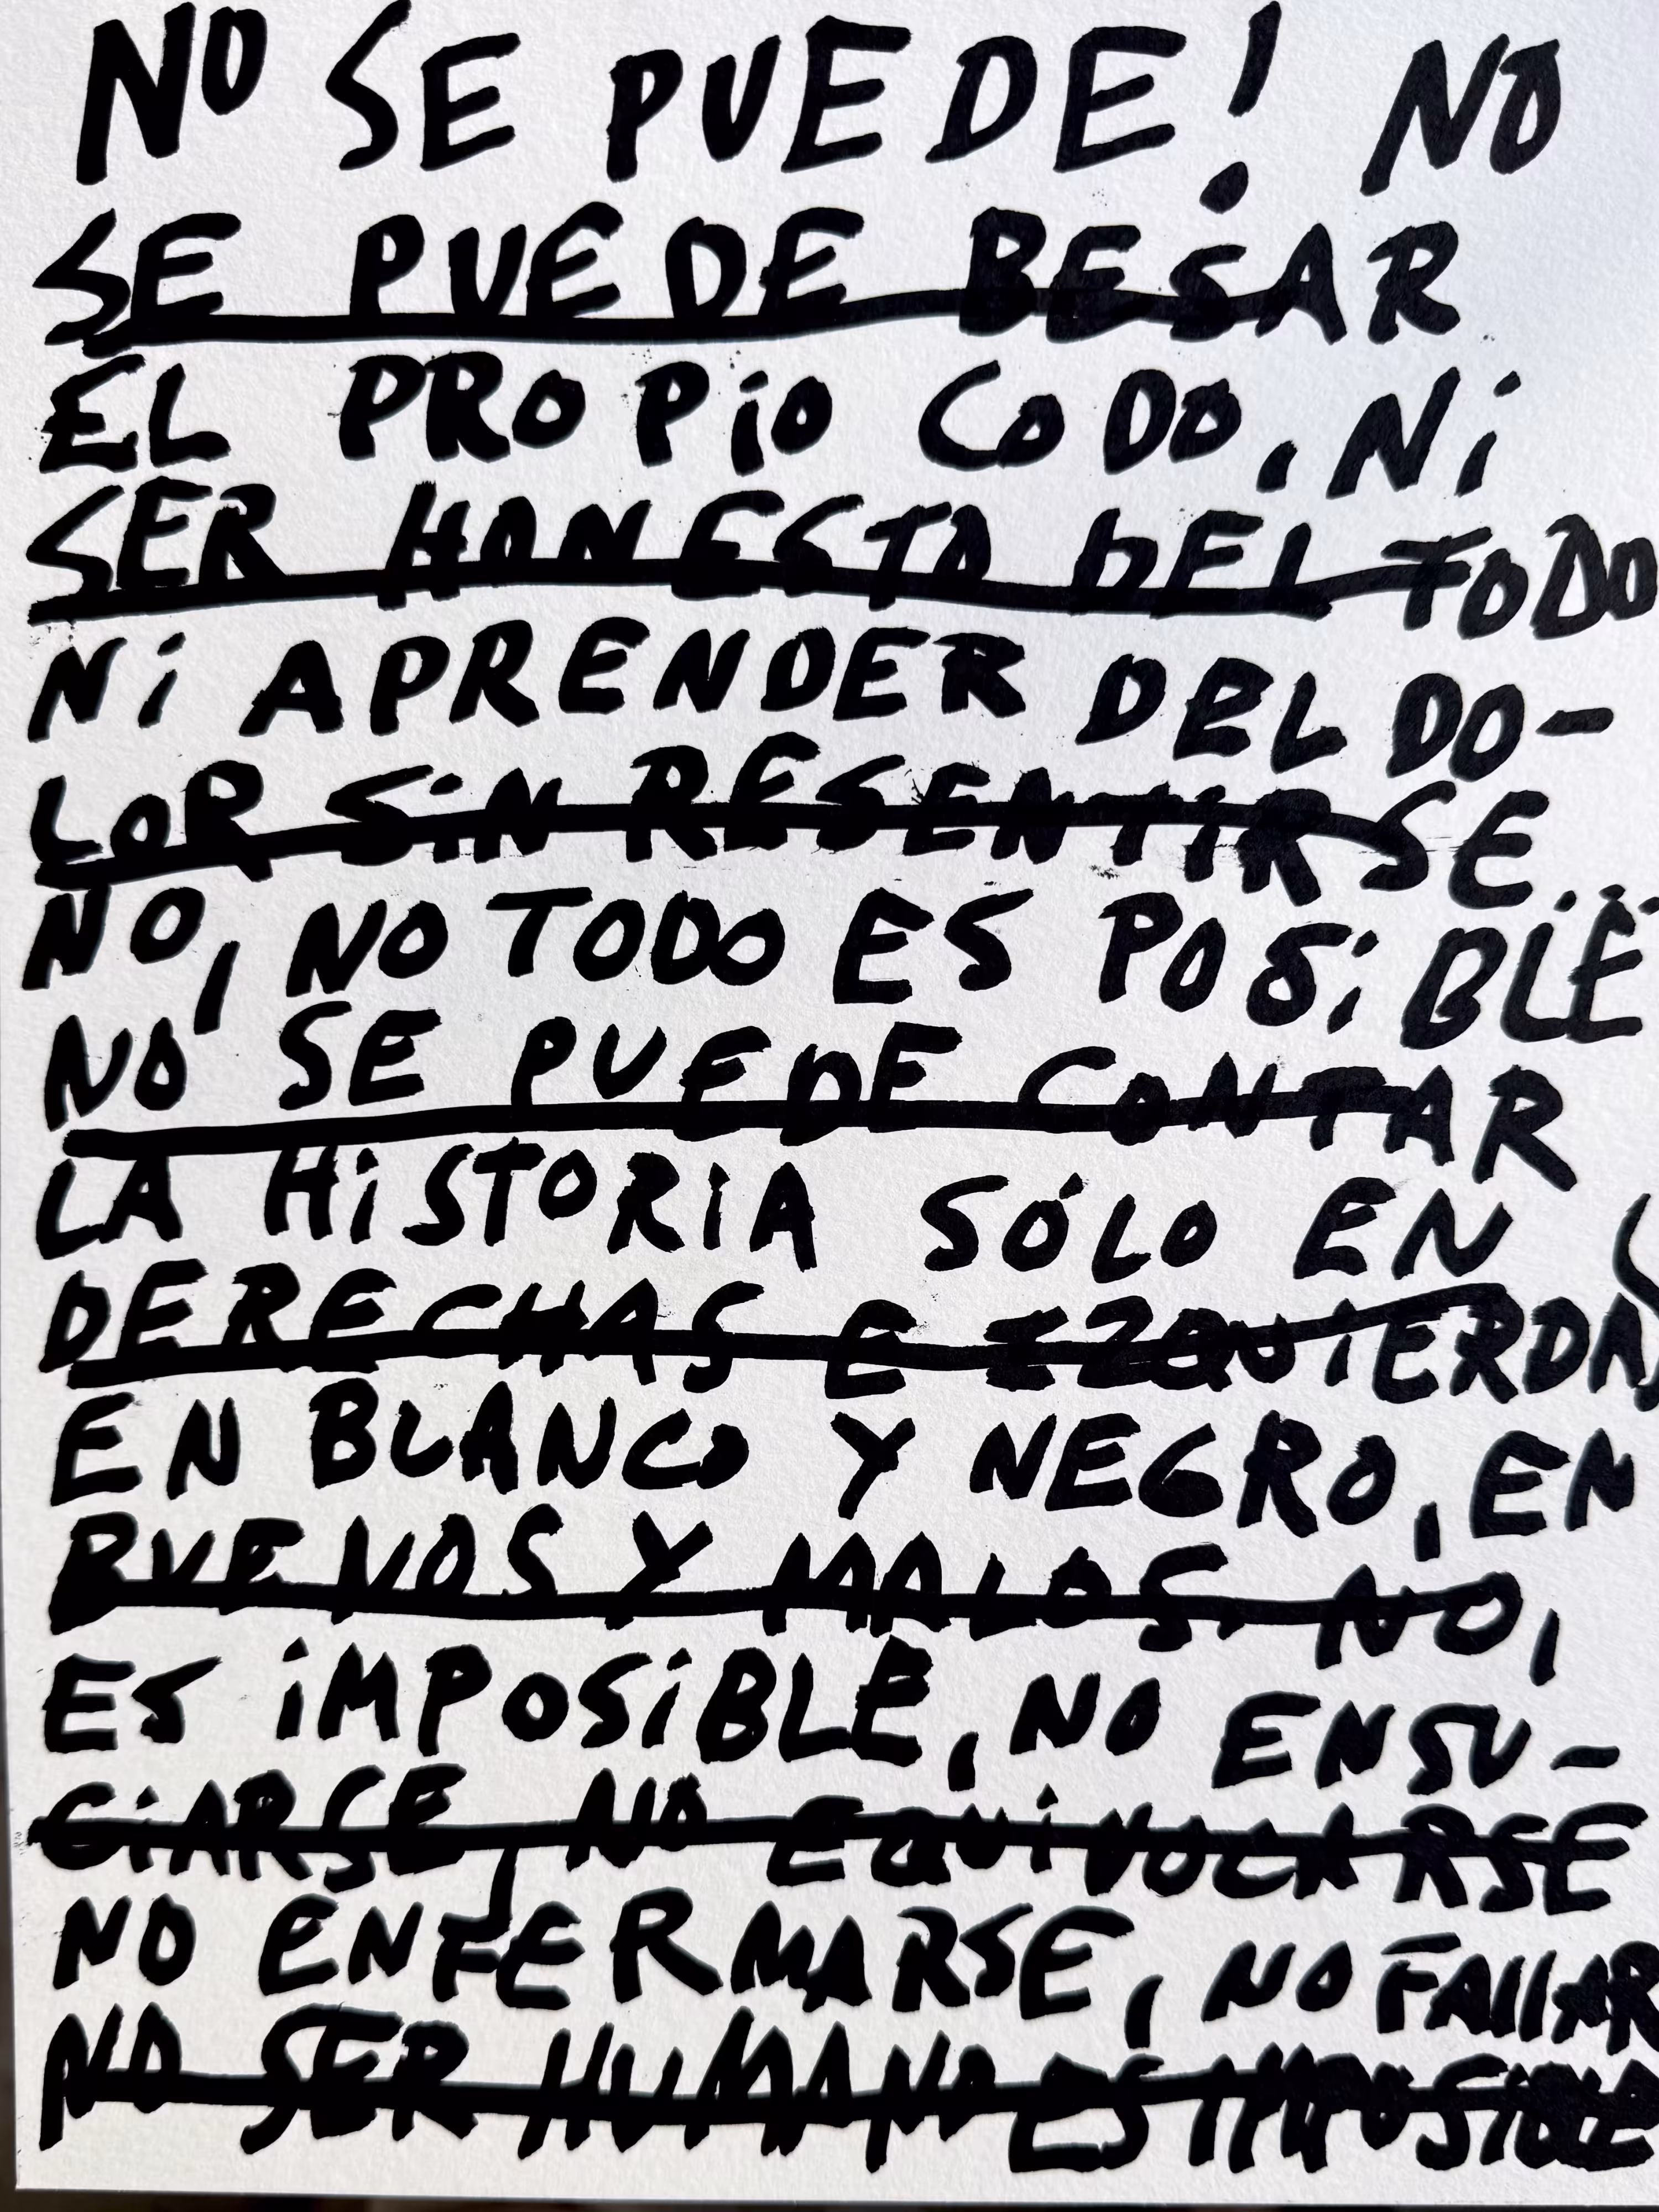 NO SE PUEDE! NO
SE PUEDE BESAR
EL PROPiO CODO, Ni
SER HONESTO DEL TODO
Ni APRENDER DEL DO-
LOR SiN RESENTIRSE...
NO, NO TODO ES POSiBLE
NO SE PUEDE CONTAR
LA HiSTORIA SÓLO EN
DERECHAS E IZQUIERDAS
EN BLANCO Y NEGRO, EN
BUENOS Y MALOS. NO,
ES iMPOSiBLE, NO ENSU-
CiARSE, NO EQUiVOCARSE
NO ENFERMARSE, NO FAllAR
NO SER HUMANO ES IMPOSIBLE